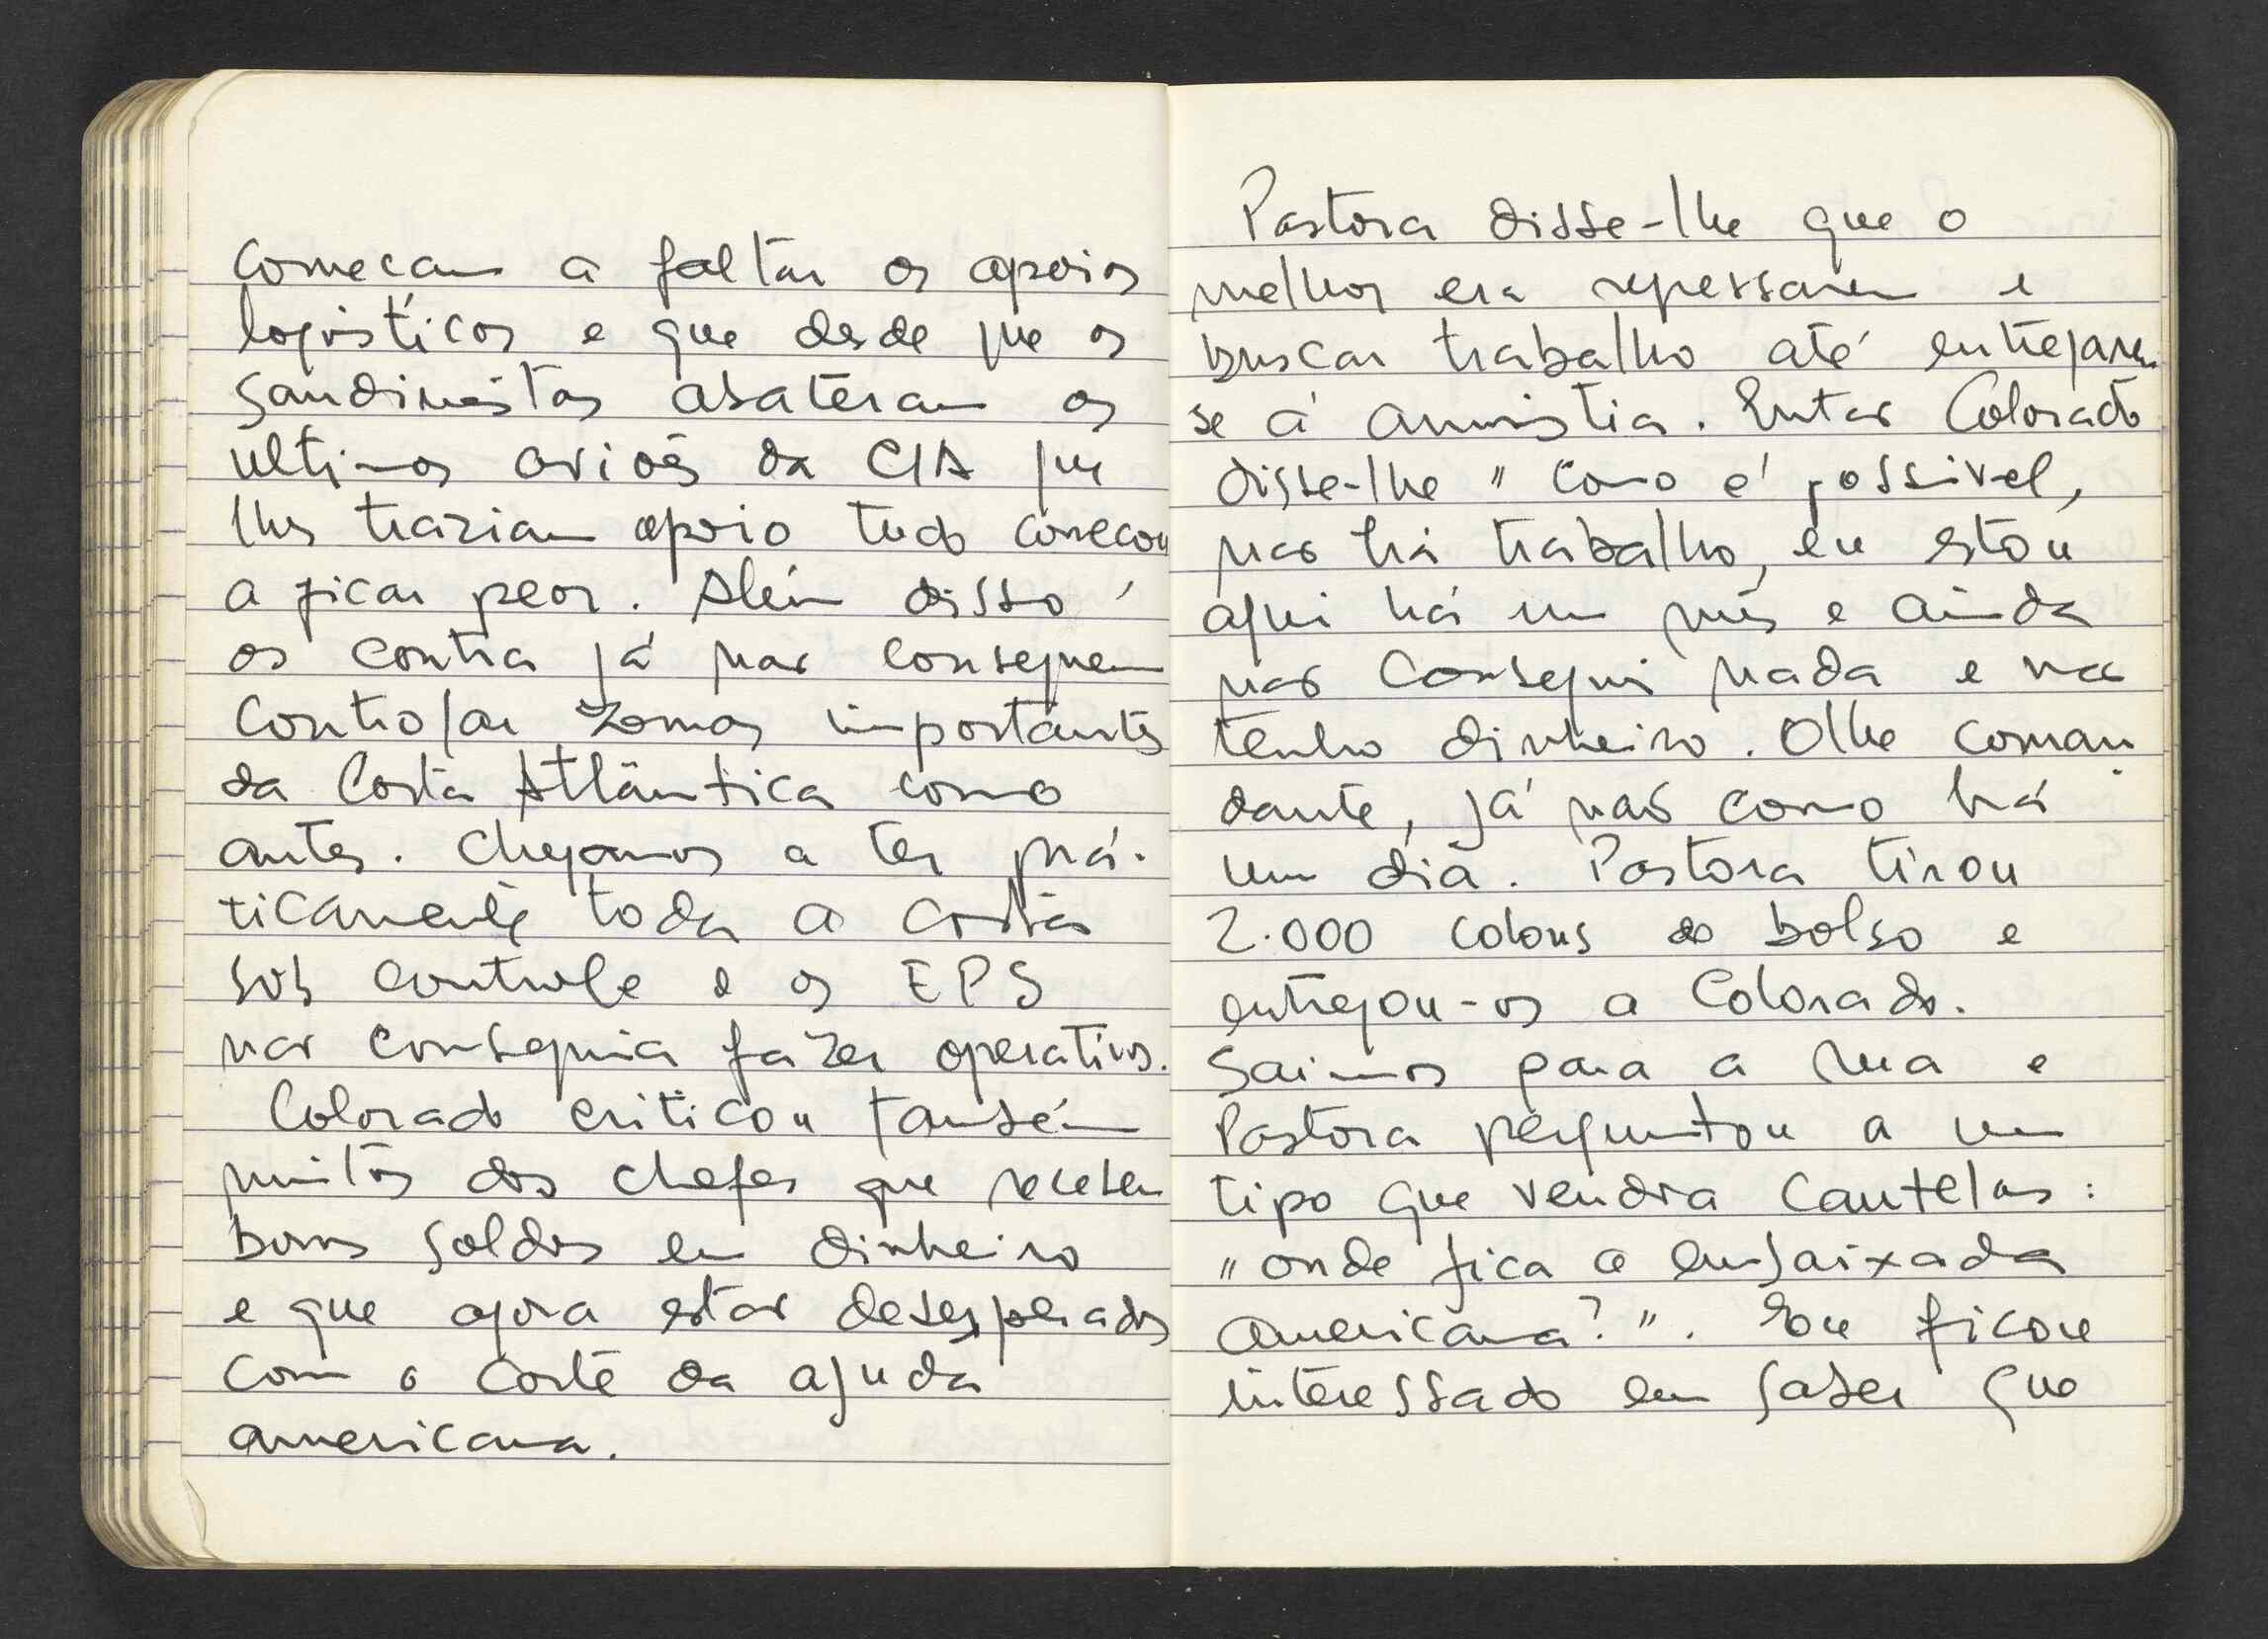 começam a faltar os apoios
logísticos e que desde que os
sandinistas abateram os
ultimos aviões da CIA que
lhes traziam apoio tudo começou
a ficar peor. Além disso
os contra já não conseguem
controlar zonas importantes
da Costa Atlântica como
antes. Chegamos a ter prá-
ticamente toda a costa
sob controle e os EPS
não conseguia fazer operativos.
Colorado criticou também
muitos dos chefes que recebem
bons soldos em dinheiro
e que agora estão desesperados
com o corte da ajuda
americana.
Pastora disse-lhe que o
melhor era regressarem e
buscar trabalho até entregarem
se á amnistia. Então Colorado
disse-lhe " como é possivel,
não há trabalho, eu estou
aqui há um mês e ainda
não consegui nada e não
tenho dinheiro. Olhe coman
dante, já não como há
um dia. Pastora tirou
2.000 colons do bolso e
entregou-os a Colorado.
Saimos para a rua e
Pastora perguntou a um
tipo que vendia cautelas:
"onde fica a embaixada
americana?". Eu ficou
interessado em saber que